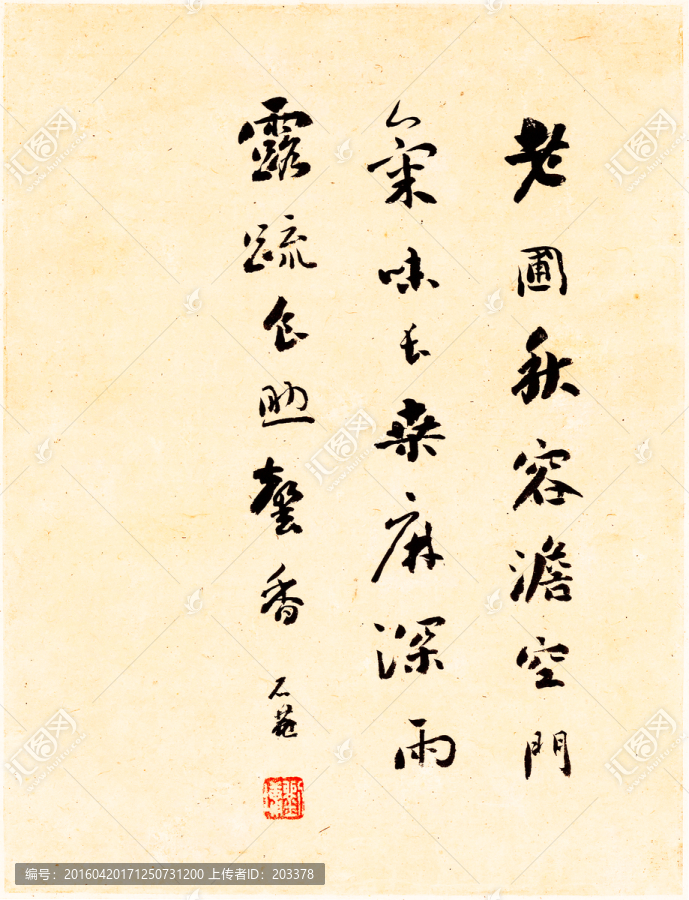 老圃秋容澹空門
氣味長桑麻深雨
露疏食助馨香
石菴
汇图网
编号：20160420171250731200 上传者ID：203378